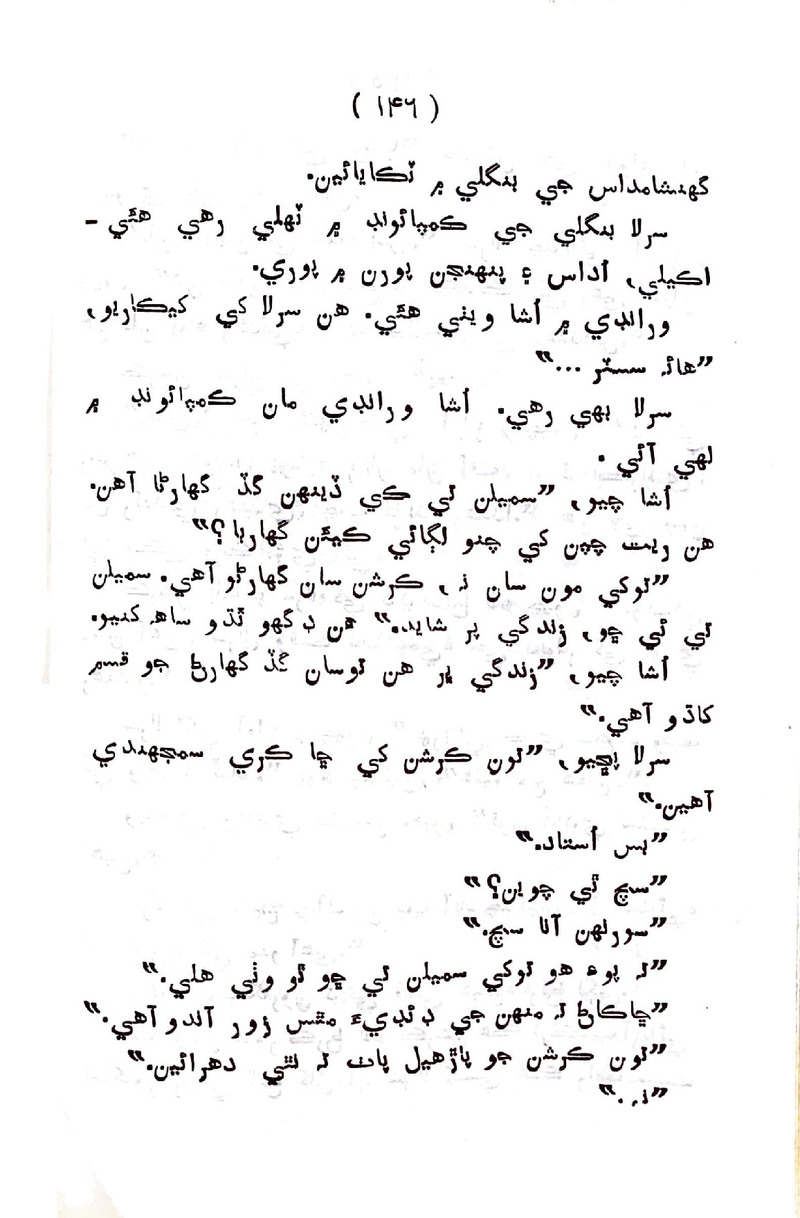 ( ۱۴۶ )
گهنشامداس جي بنگلي ۾ ٽڪايائين.
سرلا بنگلي جي ڪمپائونڊ ۾ ٽهلي رهي هئي -
اڪيلي، اُداس ۽ پنهنجن پورن ۾ پوري.
ورانڊي ۾ اُشا ويٺي هئي. هن سرلا کي کيڪاريو،
”هاءِ سسٽر ...“
سرلا بهي رهي. اُشا ورانڊي مان ڪمپائونڊ ۾
لهي آئي.
اُشا چيو، ”سميلن تي ڪي ڏينهن گڏ گهارڻا آهن.
هن ريت چپن کي چنو لڳائي ڪيئن گهاربا؟“
”توکي مون سان نه، ڪرشن سان گهارڻو آهي. سميلن
تي ئي ڇو، زندگي ڀر شايد.“ هن ڊگهو ٿڌو ساهه کنيو.
اُشا چيو، ”زندگي ڀر هن توسان گڏ گهارڻ جو قسم
کاڌو آهي.“
سرلا پڇيو، ”تون ڪرشن کي ڇا ڪري سمجهندي
آهين.“
”بس اُستاد.“
”سچ ٿي چوين؟“
”سورلهن آنا سچ.“
”ته پوءِ هو توکي سميلن تي ڇو ٿو وٺي هلي.“
”ڇاڪاڻ ته منهن جي ڊئڊيءَ مٿس زور آندو آهي.“
”تون ڪرشن جو پاڙهيل پاٺ ته نٿي دهرائين.“
”نه.“